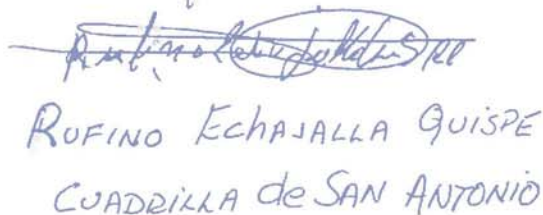 RUFINO EchAJALLA QUISPE
CUADRILLA de SAN ANTONIO